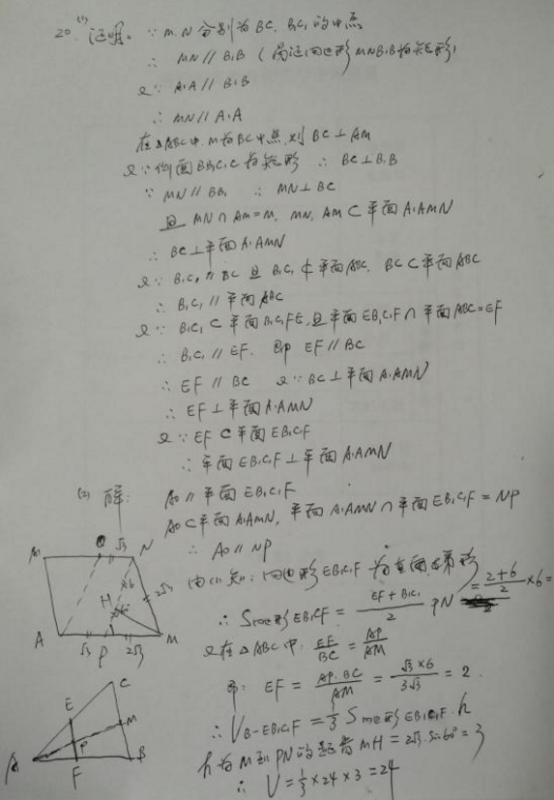 20. (1) 证明: ∵ M.N 分别为 BC, B₁C₁ 的中点
∴ MN // B₁B
又∵ A₁A // B₁B
∴ MN // A₁A
在△ABC中, M为BC中点, 则 BC⊥AM
又∵ 侧面BB₁C₁C为矩形 ∴ BC⊥B₁B
∵ MN // BB₁ ∴ MN⊥BC
且 MN∩AM=M, MN, AM⊂平面A₁AMN
∴ BC⊥平面A₁AMN
又∵ B₁C₁ // BC 且 B₁C₁⊄平面ABC, BC⊂平面ABC
∴ B₁C₁ // 平面ABC
又∵ B₁C₁⊂平面B₁C₁FE, 且平面EB₁C₁F∩平面ABC=EF
∴ B₁C₁ // EF. 即 EF // BC
∴ EF // BC 又∵ BC⊥平面A₁AMN
∴ EF⊥平面A₁AMN
又∵ EF⊂平面EB₁C₁F
∴ 平面EB₁C₁F⊥平面A₁AMN
(2) 解: AO // 平面EB₁C₁F
AO⊂平面A₁AMN, 平面A₁AMN∩平面EB₁C₁F=NP
∴ AO // NP
由(1)知: 四边形EB₁C₁F为梯形
∴ S四边形EB₁C₁F = (EF+B₁C₁)/2 · PN = (2+6)/2 ×6=
又在△ABC中, EF/BC = AP/AM
即: EF = AP·BC/AM = √3×6/3√3 = 2
∴ V B-EB₁C₁F = 1/3 S四边形EB₁C₁F · h
h为M到PN的距离 MH=2√3·sin60°=3
∴ V = 1/3×24×3=24
A₁ O √3 N
6 2√3
H 60°
A √3 P 2√3 M
C
E M
P
A F B